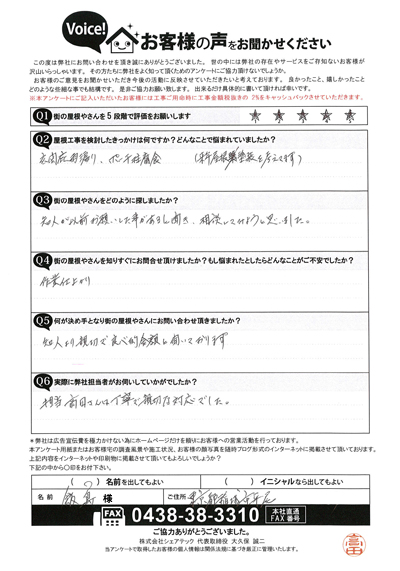 Voice! お客様の声をお聞かせください
この度は弊社にお問い合わせを頂き誠にありがとうございました。世の中には弊社の存在やサービスをご存知ないお客様が
沢山いらっしゃいます。その方たちに弊社をよく知って頂くためのアンケートにご協力頂けないでしょうか。
お客様のご意見をお聞かせいただき今後の活動に反映させていただきたいと考えております。良かったこと、嬉しかったこと
どのような些細な事でも結構です。是非ご協力お願い致します。出来るだけ具体的に書いて頂ければ幸いです。
※本アンケートにご記入いただいたお客様には工事ご用命時に工事金額税抜きの 2%をキャッシュバックさせていただきます。
Q1 街の屋根やさんを5段階で評価をお願いします ★ ★ ★ ★ ★
Q2 屋根工事を検討したきっかけは何ですか？どんなことで悩まれていましたか？
玄関庇雨漏り、ポーチ柱腐食
Q3 街の屋根やさんをどのように探しましたか？
知人が以前お願いした事があると聞き、相談してみようと思いました。
Q4 街の屋根やさんを知りすぐにお問合せ頂けましたか？もし悩まれたとしたらどんなことがご不安でしたか？
作業仕上がり
Q5 何が決め手となり街の屋根やさんにお問い合わせ頂きましたか？
知人より、親切で良心的金額と伺いております
Q6 実際に弊社担当者がお伺いしていかがでしたか？
担当 高田さんは丁寧で親切な対応でした。
＊弊社は広告宣伝費を極力かけない為にホームページだけを頼りにお客様への営業活動を行っております。
本アンケート用紙またはお客様宅の調査風景や施工状況、お客様の顔写真を随時ブログ形式のインターネットに掲載させて頂いております。
上記内容をインターネットや印刷物に掲載させて頂いてもよろしいでしょうか？
下記の中から〇印をお付下さい。
（ 〇 ）名前を出してもよい （ ）イニシャルなら出してもよい
名前 飯島 様 ご住所 東京都稲城市平尾
FAX 0438-38-3310 本社直通 FAX番号
ご協力ありがとうございました。
株式会社シェアテック 代表取締役 大久保 誠二
当アンケートで取得したお客様の個人情報は関係法規に基づき厳正に管理いたします。
高田